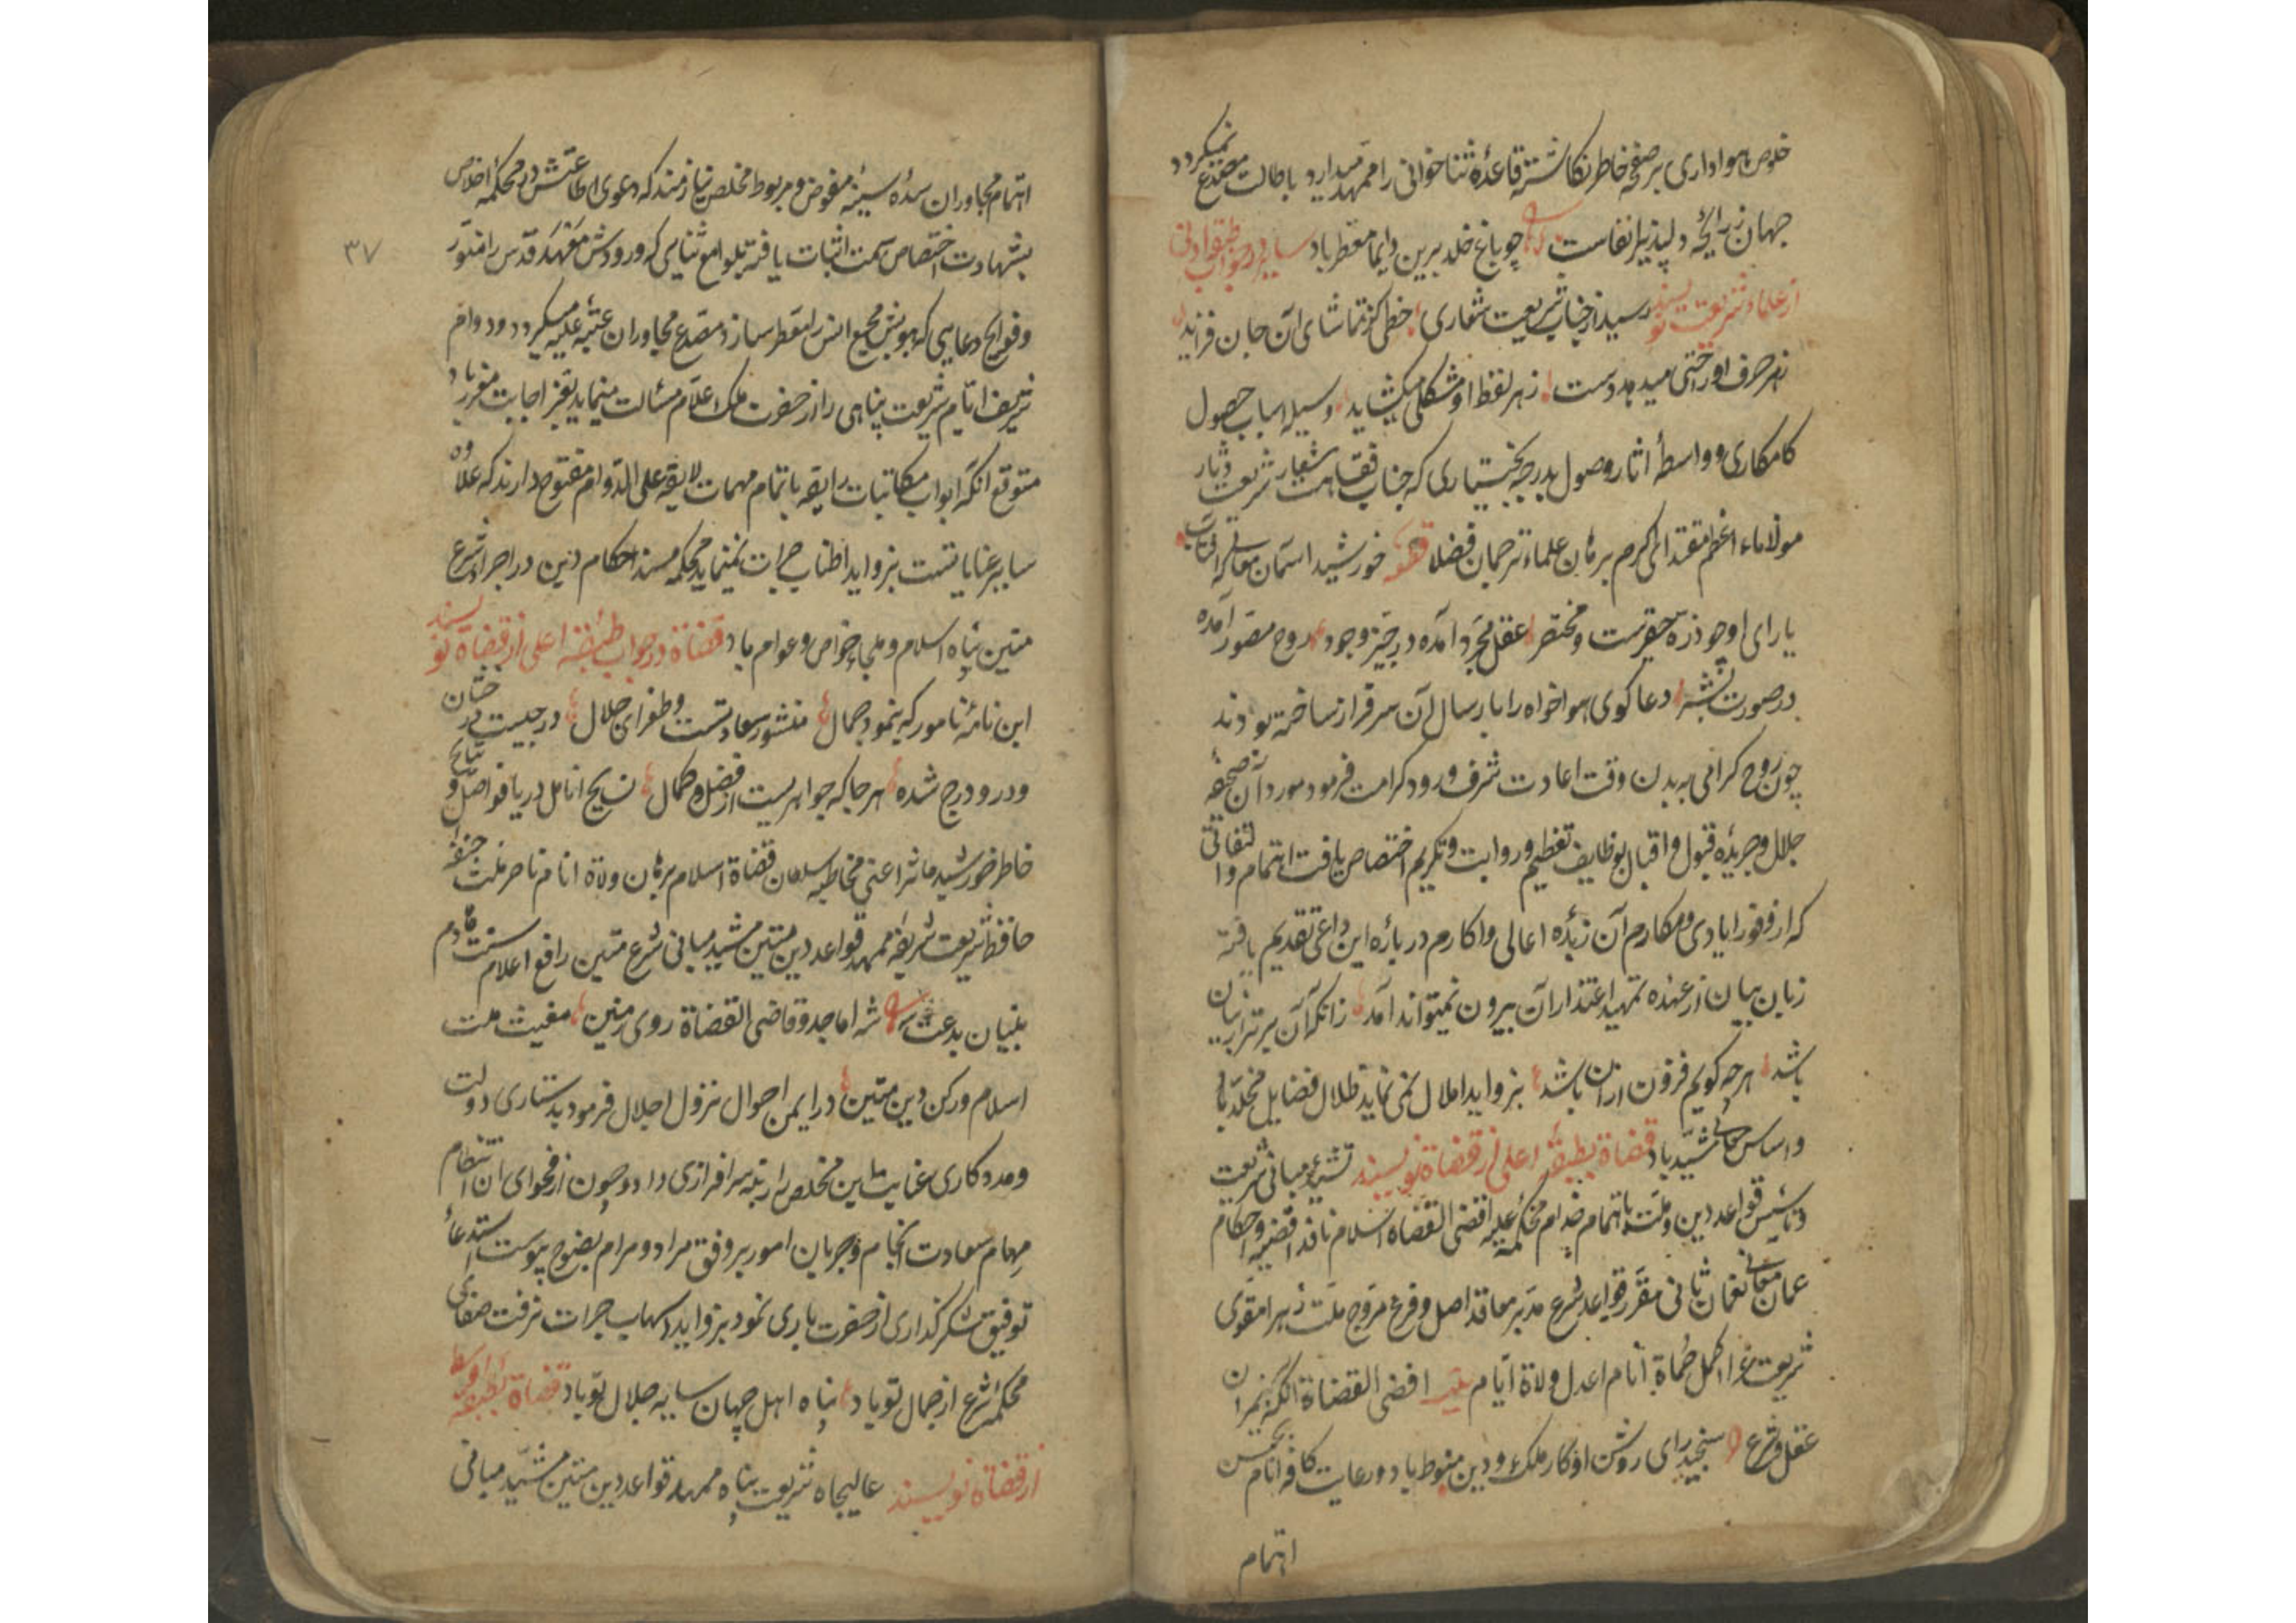 خلوص هواداری بر صفحه خاطر نکاشته قاعدهٔ ثنا خوانی را ممهد میدارد باطالت مصدع نمیکردد
جهان ز رایحه دلپذیر انفاست چو باغ خلد برین دایما معطر باد سایر در جواب طبقه ادنی
از علماء شریعت نویسند رسید از جناب شریعت شعاری خطی کز تماشای آن جان فزاید
ز هر حرف او راحتی میدهد دست ز هر لفظ او مشکلی میکشاید وسیله اسباب حصول
کامکاری و واسطهٔ اثار وصول بدرجه بختیاری که جناب فقاهت شعار شریعت دثار
مولاناء اعظم مقتدای اکرم برهان علماء ترجمان فضلا خورشید اسمان معالی که آفتاب
با رای او چو ذره حقیرست و مختصر عقل مجرد آمده در حیز وجود روح مصور آمده
در صورت بشر دعا کوی هواخواه را بارسال آن سرافراز ساخته بودند
چون روح کرامی به بدن وقت اعادت شرف ورود کرامت فرمود مورد آن صحیفه
جلال و جریده قبول و اقبال بوظایف تعظیم و روایت و تکریم اختصاص یافت اهتمام و التفاتی
که از وفور ایادی و مکارم آن زبده اعالی و اکارم در بارهٔ این داعی تقدیم یافته
زبان بیان از عهده تمهید اعتذار آن بیرون نمیتواند آمد زانکه آن برتر از بیان
باشد هر چه کویم فزون از ان باشد بزواید املال نمی نماید ظلال فضایل مخلد باد
و اساس معالی مشید باد قضاة بطبقه اعلی از قضاة نویسند تشیید مبانی شریعت
و تاسیس قواعد دین و ملت باهتمام خدام محکمه علیه اقضی القضاه اسلام نافذ اقضیه و احکام
عمان معانی نعمان ثانی مقرر قواعد شرع مدبر معاقد اصل و فرع مروج ملت زهرا مقوی
شریعت غرا اکمل حماة انام اعدل ولاة ایام اقضی القضاة آنکه بمیزان
عقل و شرع سنجید رای روشن او کار ملک و دین منوط باد و رعایت کافه انام بحسن
اهتمام
۳۷
اهتمام مجاوران سدهٔ سنیه مفوض و مربوط مخلص نیازمند که دعوی اطاعتش در محکمه اخلاص
بشهادت اختصاص سمت اثبات یافته بلوامع ثنایی که ورودش مشهد قدس را منور
و فوایح دعایی که بویش مجمع انس را معطر سازد مصدع مجاوران عتبه علیه میکردد و دوام
شریف ایام شریعت پناهی را از حضرت ملک علام مسالت مینماید بعز اجابت مقرون باد
متوقع آنکه ابواب مکاتبات رایقه باتمام مهمات لایقه علی الدوام مفتوح دارند که علاوه
سایر عنایاتست بزواید اطناب جرات نمینماید محکمه مسند احکام دین در اجراء شرع
متین پناه اسلام و ملجاء خواص و عوام باد قضاة در جواب طبقه اعلی از قضاة نویسند
این نامهٔ نامور که بنمود جمال منشور سعادتست و طغرای جلال درجیست درخشان
و درو درج شده هر جا که جواهریست از فضل و کمال نسیج انامل دریا فواصل و نتایج
خاطر خورشید ماثر اعنی مخاطبه سلطان قضاة اسلام برهان ولاة انام ناصر ملت حنیفه
حافظ شریعت شریفه ممهد قواعد دین مستبین مشید مبانی شرع متین رافع اعلام سنت هادم
بنیان بدعت شه اماجد و قاضی القضاة روی زمین مغیث ملت
اسلام و رکن دین متین در ایمن احوال نزول اجلال فرمود بدستیاری دولت
و مددکاری عنایت این مخلص را رتبه سرافرازی داد و چون از فحوای ان انتظام
مهام سعادت انجام و جریان امور بر وفق مراد و مرام بوضوح پیوست استدعاء
توفیق شکر گذاری از حضرت باری نمود بزواید اسهاب جرات نرفت صفای
محکمه شرع از جمال تو باد پناه اهل جهان سایه جلال تو باد قضاة بطبقه اوسط
از قضاة نویسند عالیجاه شریعت پناه ممهد قواعد دین متین مشید مبانی